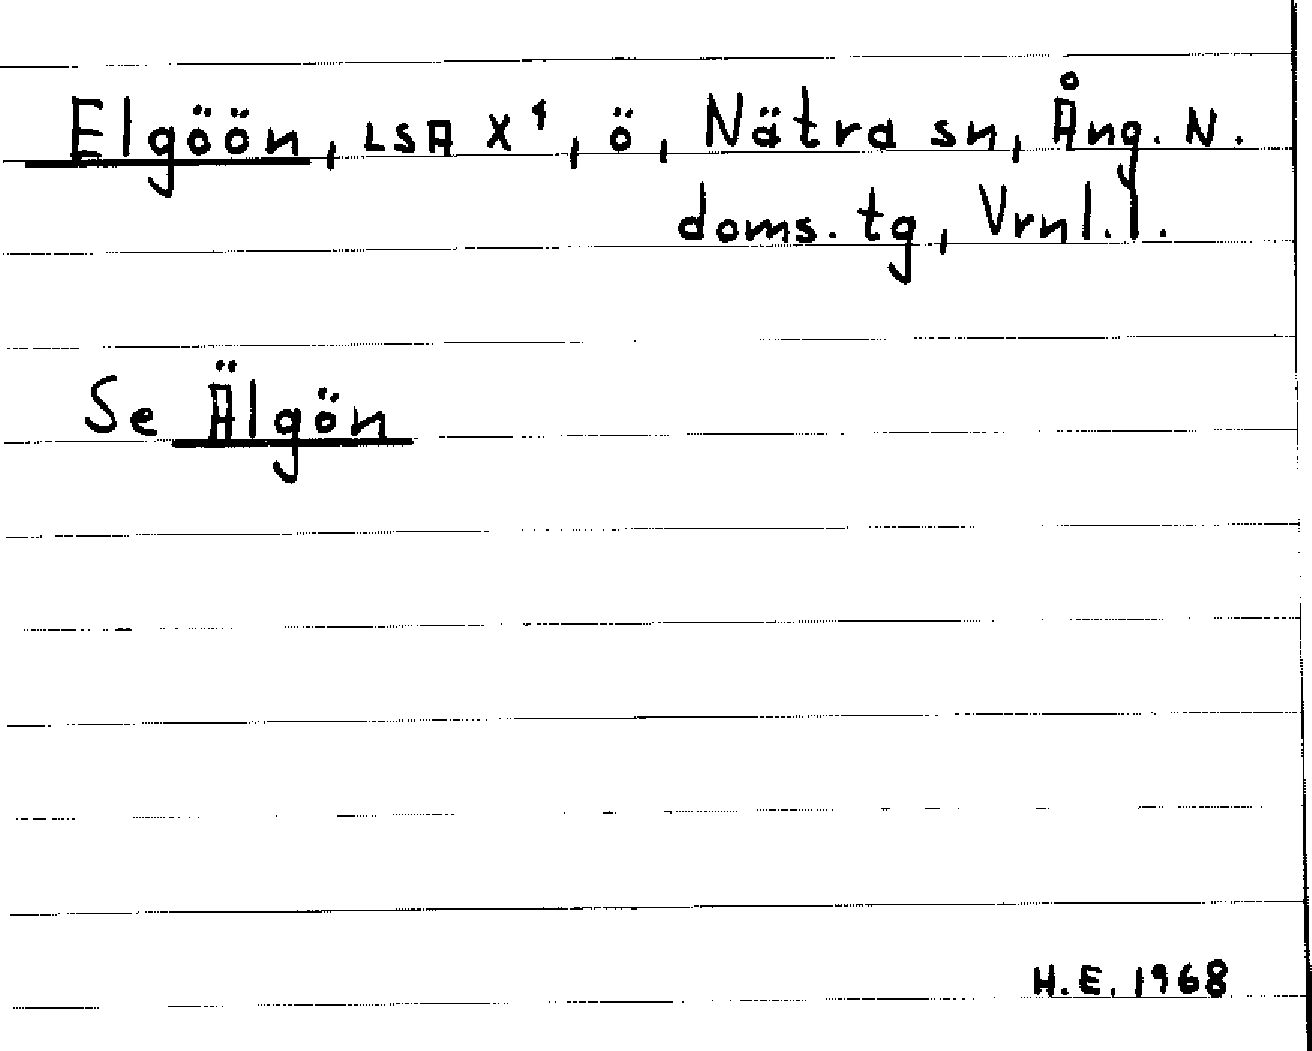 Elgöön, LSA X¹, ö, Nätra sn, Ång. N.
doms. tg, Vrnl. l.
Se Älgön
H.E. 1968